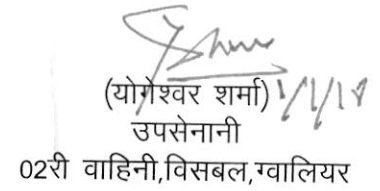 (योगेश्वर शर्मा) 1/1/18
उपसेनानी
02री वाहिनी,विसबल,ग्वालियर